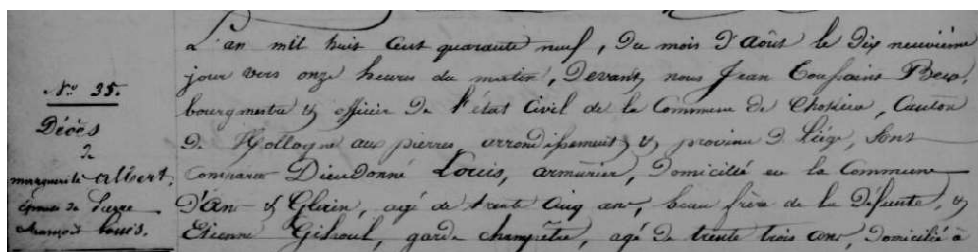 N.° 35.
Décès
de
marguerite albert,
épouse de Pierre
françois Louis.
L'an mil huit cent quarante neuf, du mois d'août le dix neuvième
jour vers onze heures du matin, devant nous Jean Toussaint
bourgmestre & officier de l'état civil de la Commune de Chokier, Canton
de Hollogne aux pierres, arrondissement & province de Liége, sont
comparus Dieudonné Louis, armurier, domicilié en la Commune
d'Ans & Glain, agé de trente cinq ans, beau frère de la défunte, &
Etienne Gilsoul, garde champêtre, agé de trente trois ans domicilié à